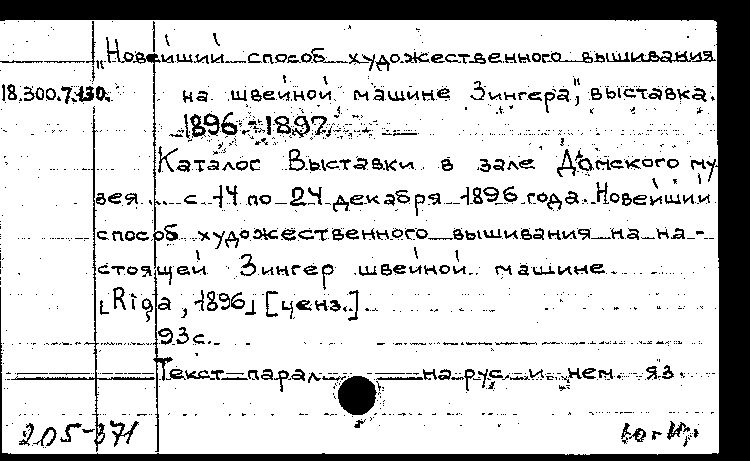 „Новейший способ художественного вышивания
18.300.7.130. на швейной машине Зингера", выставка.
1896.-1897
Каталог Выставки в зале Домского му
зея ... с 14 по 24 декабря 1896 года. Новейший
способ художественного вышивания на на-
стоящей Зингер швейной машине
[Riga, 1896] [ценз.].
93с.
Текст парал. на рус. и нем. яз.
205-371